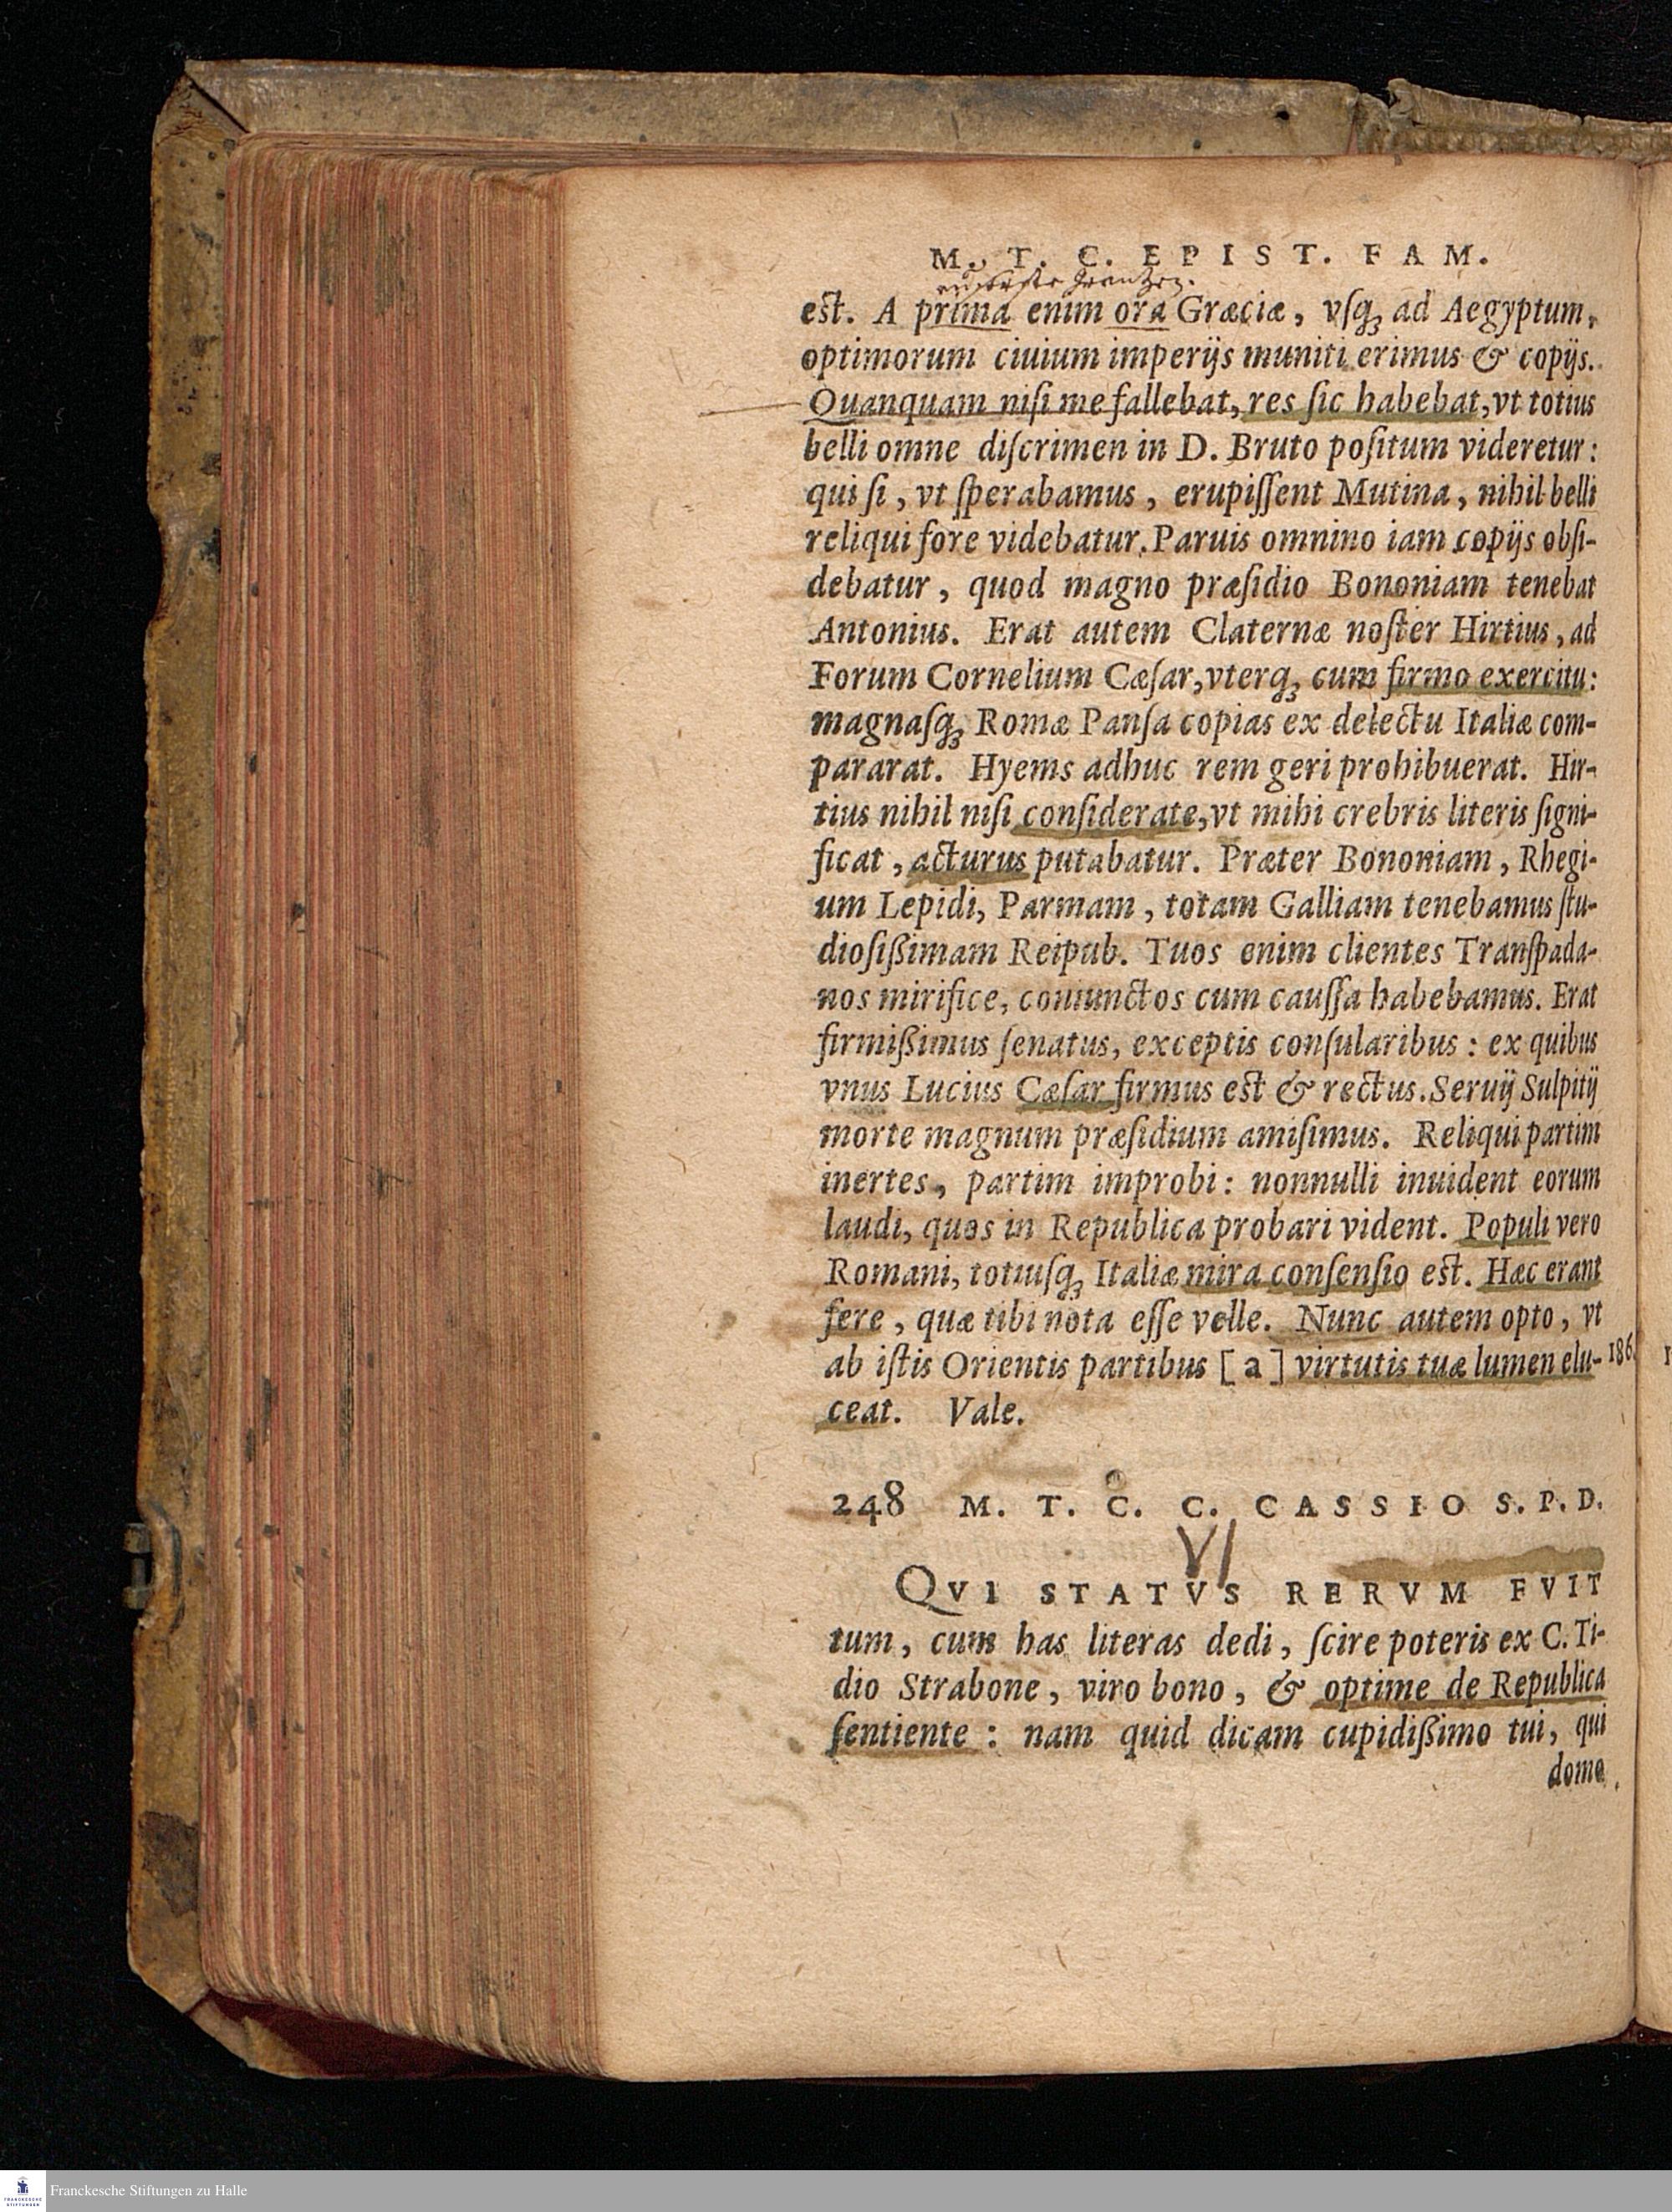 M. T. C. EPIST. FAM.
est. A prima enim ora Græciæ, vſq; ad Aegyptum,
optimorum ciuium imperijs muniti erimus & copijs.
Quanquam niſi me fallebat, res ſic habebat, vt totius
belli omne diſcrimen in D. Bruto poſitum videretur:
qui ſi, vt ſperabamus, erupiſſent Mutina, nihil belli
reliqui fore videbatur. Paruis omnino iam copijs obſi-
debatur, quod magno præſidio Bononiam tenebat
Antonius. Erat autem Claternæ noſter Hirtius, ad
Forum Cornelium Cæſar, vterq; cum firmo exercitu:
magnaſq; Romæ Panſa copias ex delectu Italiæ com-
pararat. Hyems adhuc rem geri prohibuerat. Hir-
tius nihil niſi conſiderate, vt mihi crebris literis ſigni-
ficat, acturus putabatur. Præter Bononiam, Rhegi-
um Lepidi, Parmam, totam Galliam tenebamus ſtu-
dioſißimam Reipub. Tuos enim clientes Tranſpada-
nos mirifice, coniunctos cum cauſſa habebamus. Erat
firmißimus ſenatus, exceptis conſularibus: ex quibus
vnus Lucius Cæſar firmus est & rectus. Seruij Sulpitij
morte magnum præſidium amiſimus. Reliqui partim
inertes, partim improbi: nonnulli inuident eorum
laudi, quos in Republica probari vident. Populi vero
Romani, totiuſq; Italiæ mira conſenſio est. Hæc erant
fere, quæ tibi nota eſſe velle. Nunc autem opto, vt
ab iſtis Orientis partibus [a] virtutis tuæ lumen elu- 186.
ceat. Vale.
248 M. T. C. C. CASSIO S. P. D.
VI
QVI STATVS RERVM FVIT
tum, cum has literas dedi, ſcire poteris ex C. Ti-
dio Strabone, viro bono, & optime de Republica
ſentiente: nam quid dicam cupidißimo tui, qui
domo
Franckesche Stiftungen zu Halle